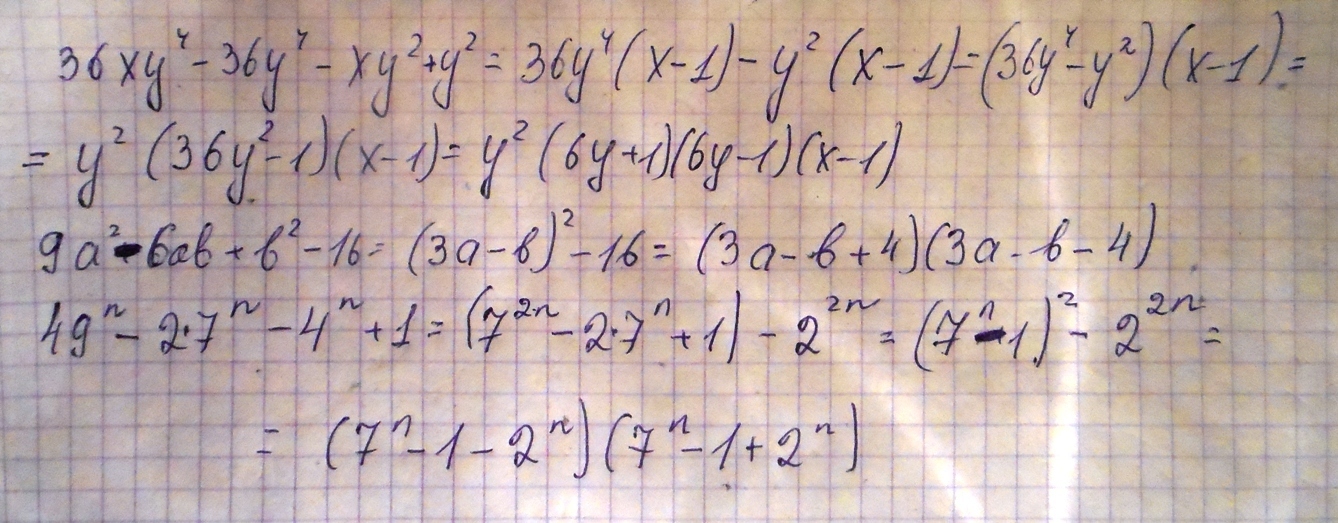 36xy⁴-36y⁴-xy²+y²=36y⁴(x-1)-y²(x-1)=(36y⁴-y²)(x-1)=
=y²(36y²-1)(x-1)=y²(6y+1)(6y-1)(x-1)
9a²-6ab+b²-16=(3a-b)²-16=(3a-b+4)(3a-b-4)
49ⁿ-2·7ⁿ-4ⁿ+1=(7²ⁿ-2·7ⁿ+1)-2²ⁿ=(7ⁿ-1)²-2²ⁿ=
=(7ⁿ-1-2ⁿ)(7ⁿ-1+2ⁿ)